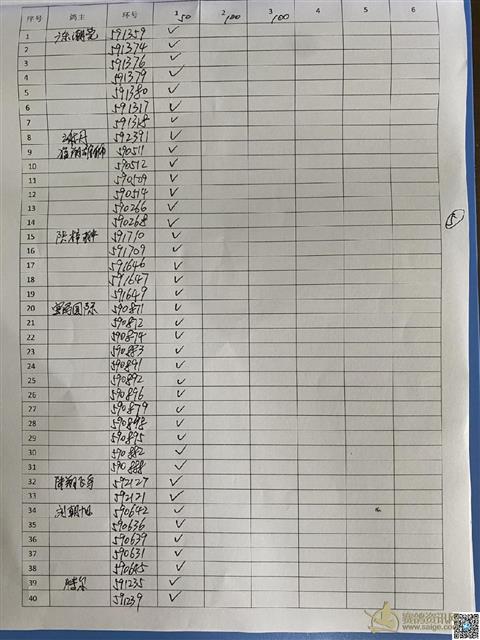 序号 鸽主 环号 1 50 2 100 3 100 4 5 6
1 591359 ✓
2 591374 ✓
3 591376 ✓
4 591379 ✓
5 591380 ✓
6 591317 ✓
7 591318 ✓
8 592391 ✓
9 590511 ✓
10 590512 ✓
11 590509 ✓
12 590514 ✓
13 590266 ✓
14 590268 ✓
15 591710 ✓
16 591709 ✓
17 591646 ✓
18 591647 ✓
19 591649 ✓
20 国际 590871 ✓
21 590872 ✓
22 590874 ✓
23 590883 ✓
24 590891 ✓
25 590892 ✓
26 590896 ✓
27 590879 ✓
28 590898 ✓
29 590895 ✓
30 590882 ✓
31 590888 ✓
32 592127 ✓
33 592121 ✓
34 刘朝旭 590642 ✓
35 590636 ✓
36 590639 ✓
37 590631 ✓
38 590645 ✓
39 591235 ✓
40 591239 ✓
5
赛鸽资讯网
www.saige.com